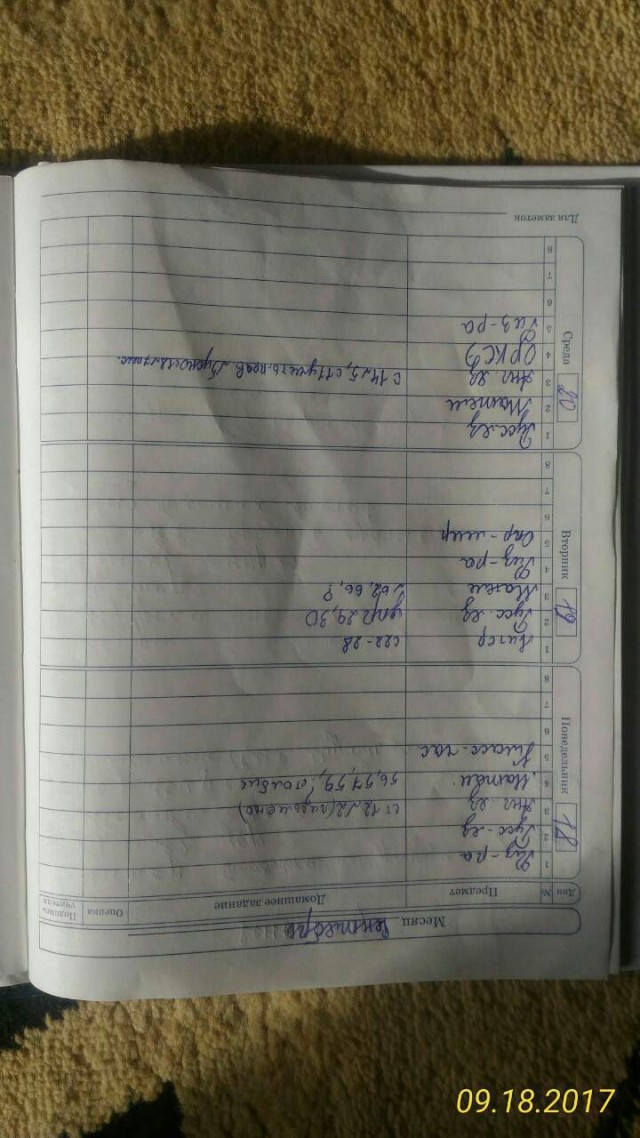 Месяц Сентябрь
Дни № Предмет Домашнее задание Оценка Подпись учителя
Понедельник 18
1 Физ-ра
2 Русс.яз
3 Анг.яз ст 12 №2 (письменно)
4 Матем. 56, 57, 59,
5 Класс-час
6
7
8
Вторник 19
1 Литер с22-28
2 Русс.яз упр 29,30
3 Матем 62, 66,
4 Физ-ра
5 Окр-мир
6
7
8
Среда 20
1 Русс.яз
2 Матем
3 Анг.яз с 14 №5, с 11 учить
4 ОРКСЭ
5 Физ-ра
6
7
8
Для заметок
09.18.2017